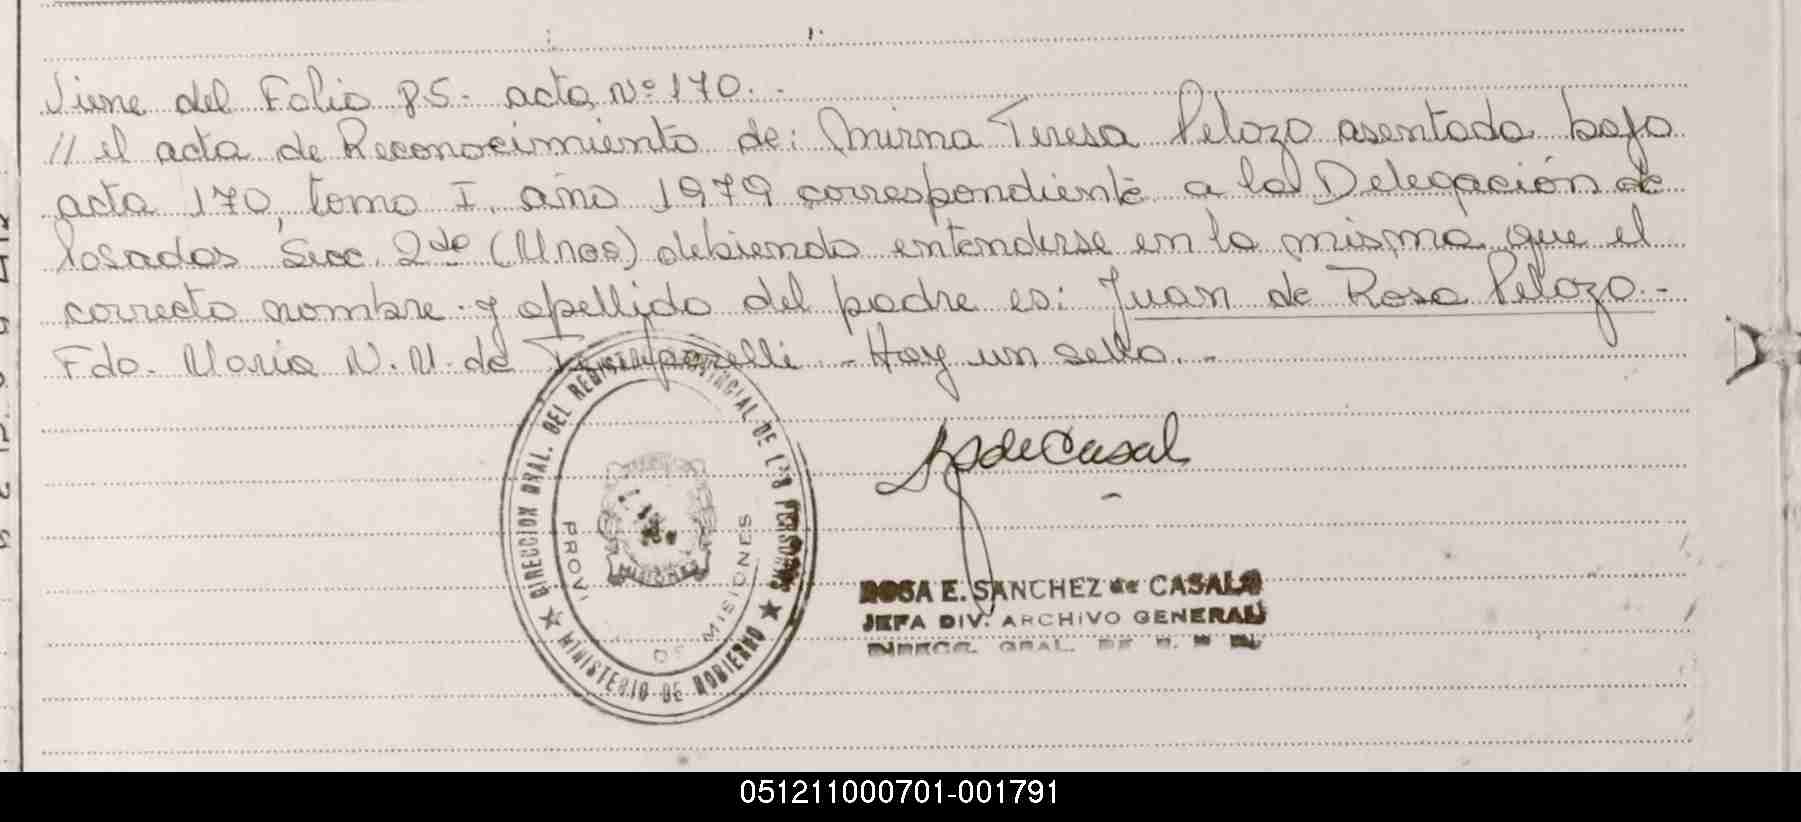 Viene del Folio 85. acta Nº 170.-
// el acta de Reconocimiento de: Mirna Teresa Pelozo asentada bajo
acta 170, tomo I, año 1979 correspondiente a la Delegación de
Posadas Secc. 2da (Unos) debiendo entenderse en la misma que el
correcto nombre y apellido del padre es: Juan de Rosa Pelozo.-
Fdo. María N. M. de - Hay un sello.-
DIRECCION GRAL. DEL REGISTRO PROVINCIAL DE LAS PERSONAS
MINISTERIO DE GOBIERNO
PROVI DE MISIONES
de Casal
ROSA E. SANCHEZ de CASAL
JEFA DIV. ARCHIVO GENERAL
DIRECC. GRAL. DE
051211000701-001791